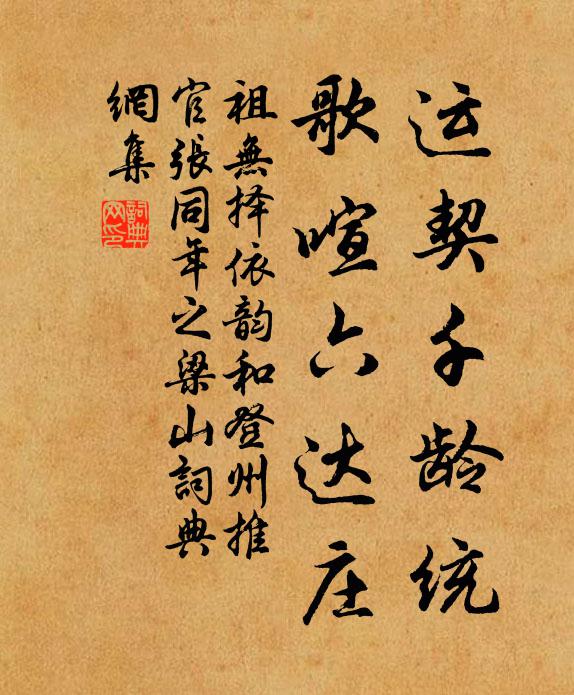 运契千龄统
歌喧六达庄
祖无择依韵和登州推
官張同年之梁山詞典
網集
詞典
网印